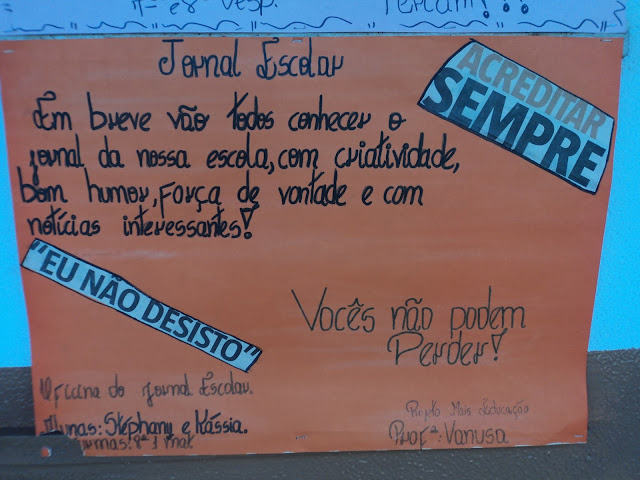 7ª e 8ª Vesp.
Percam!!!
Jornal Escolar
ACREDITAR
SEMPRE
Em breve vão todos conhecer o
jornal da nossa escola, com criatividade,
bom humor, força de vontade e com
notícias interessantes!
"EU NÃO DESISTO"
Vocês não podem
Perder!
Oficina do Jornal Escolar.
Projeto Mais Educação
Alunas: Stephany e Kássia.
Profª: Vanusa
Turmas: 8ª 1 mat